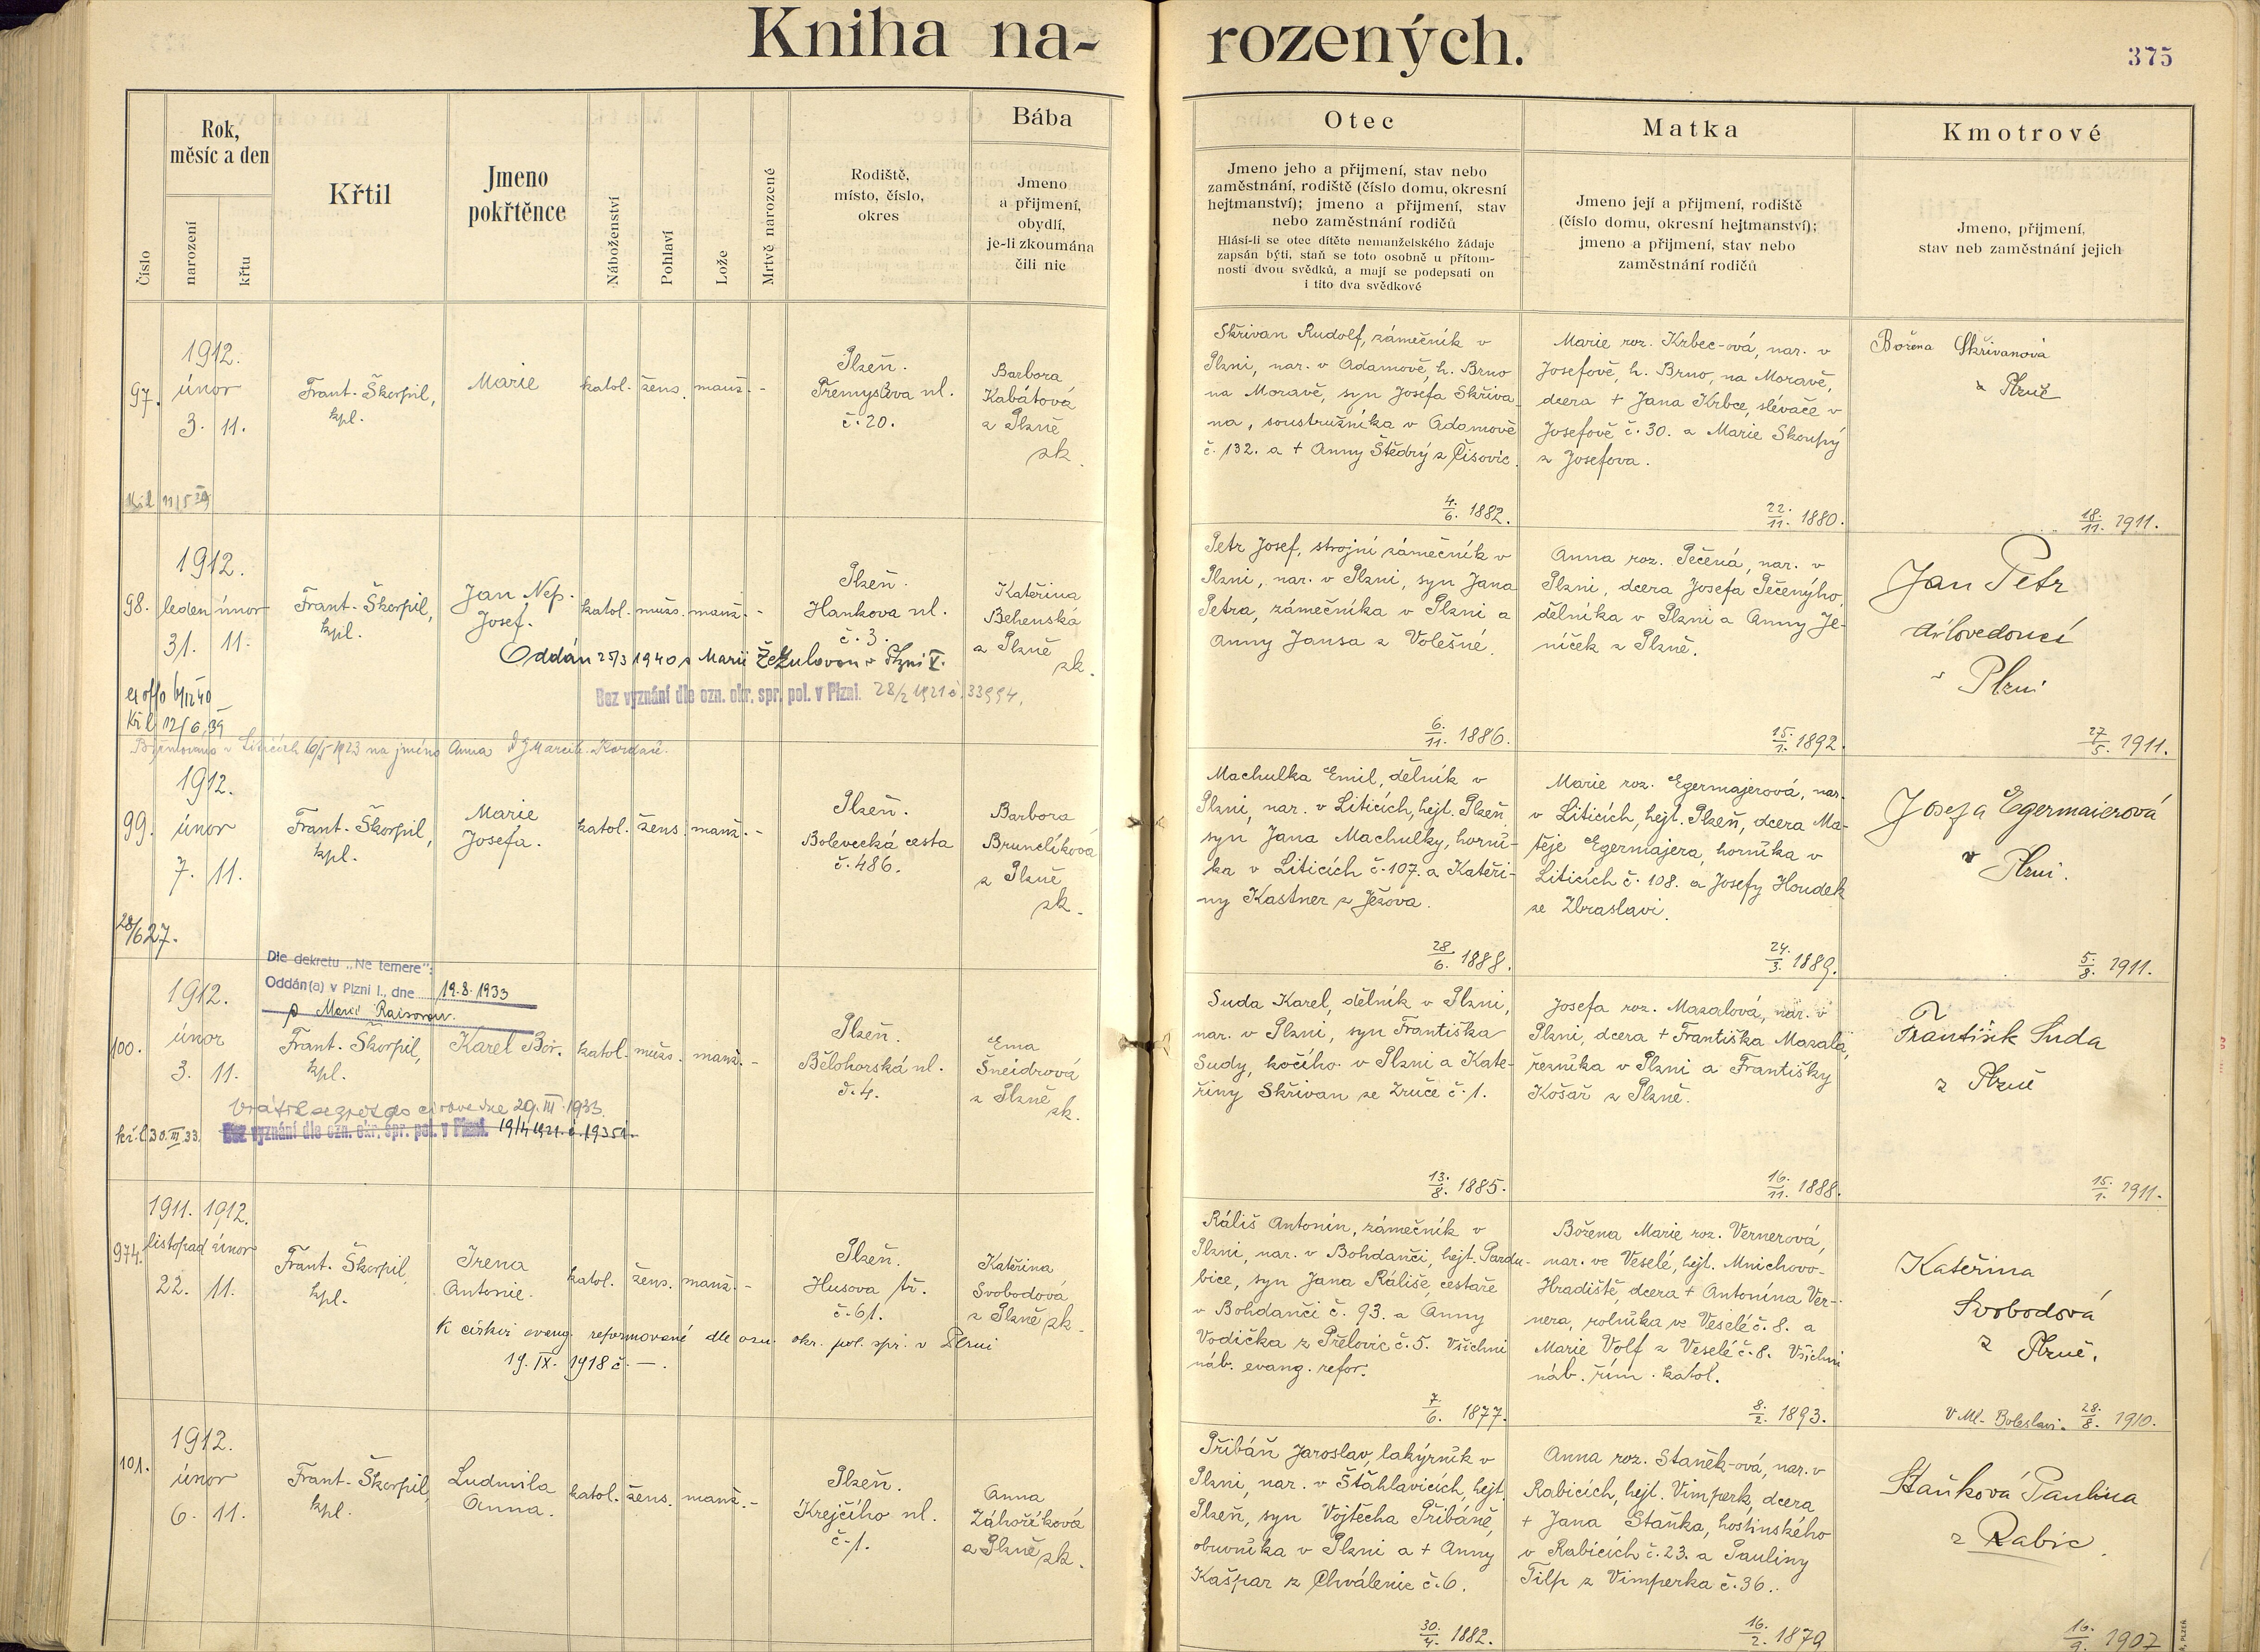 Kniha na-
rozených.
375
Číslo
Rok,
měsíc a den
narození
křtu
Křtil
Jmeno
pokřtěnce
Náboženství
Pohlaví
Lože
Mrtvě narozené
Rodiště,
místo, číslo,
okres
Bába
Jmeno
a přijmení,
obydlí,
je-li zkoumána
čili nic
Otec
Jmeno jeho a přijmení, stav nebo
zaměstnání, rodiště (číslo domu, okresní
hejtmanství); jmeno a přijmení, stav
nebo zaměstnání rodičů
Hlásí-li se otec dítěte nemanželského žádaje
zapsán býti, staň se toto osobně u přítom-
nosti dvou svědků, a mají se podepsati on
i tito dva svědkové
Matka
Jmeno její a přijmení, rodiště
(číslo domu, okresní hejtmanství);
jmeno a přijmení, stav nebo
zaměstnání rodičů
Kmotrové
Jmeno, přijmení,
stav neb zaměstnání jejich
97.
1912.
únor
3. 11.
Frant. Škorpil,
kpl.
Marie
katol. žens. manž. -
Plzeň.
Přemyslova ul.
č. 20.
Barbora
Kabátová
z Plzně
zk.
Skřivan Rudolf, zámečník v
Plzni, nar. v Adamově, h. Brno
na Moravě, syn Josefa Skřiva-
na, soustružníka v Adamově
č. 132. a + Anny Štědrý z Čisovic.
4./6. 1882.
Marie roz. Krbec-ová, nar. v
Josefově, h. Brno, na Moravě,
dcera + Jana Krbce, slévače v
Josefově č. 30. a Marie Skoupý
z Josefova.
22./11. 1880.
Božena Skřivanová
z Plzně
18./11. 1911.
98.
1912.
leden únor
31. 11.
Frant. Škorpil,
kpl.
Jan Nep.
Josef.
katol. mužs. manž. -
Plzeň.
Hankova ul.
č. 3.
Kateřina
Behenská
z Plzně
zk.
Oddán 25/3 1940 s Marií Žežulovou v Plzni V.
Bez vyznání dle ozn. okr. spr. pol. v Plzni. 28/2 1921 č. 33994.
ex offo 6/12 40
Kř. l. 12/6 39
Petr Josef, strojní zámečník v
Plzni, nar. v Plzni, syn Jana
Petra, zámečníka v Plzni a
Anny Jansa z Volešné.
6./11. 1886.
Anna roz. Pečená, nar. v
Plzni, dcera Josefa Pečenýho,
dělníka v Plzni a Anny Je-
níček z Plzně.
15./1. 1892.
Jan Petr
dílovedoucí
v Plzni
27/5. 1911.
Biřmována v Liticích 10/5 1923 na jméno Anna
99.
1912.
únor
7. 11.
28/6 27.
Frant. Škorpil,
kpl.
Marie
Josefa.
katol. žens. manž. -
Plzeň.
Bolevecká cesta
č. 486.
Barbora
Brunclíková
z Plzně
zk.
Machulka Emil, dělník v
Plzni, nar. v Liticích, hejt. Plzeň,
syn Jana Machulky, horní-
ka v Liticích č. 107. a Kateři-
ny Kastner z Ježova.
28./6. 1888.
Marie roz. Egermajerová, nar.
v Liticích, hejt. Plzeň, dcera Ma-
těje Egermajera, horníka v
Liticích č. 108. a Josefy Houdek
ze Zbraslavi.
24./3. 1889.
Josefa Egermaierová
v Plzni.
5./8. 1911.
Dle dekretu „Ne temere":
Oddán(a) v Plzni I., dne 19.8.1933
s Marií Raisovou.
100.
1912.
únor
3. 11.
Frant. Škorpil,
kpl.
Karel Boř.
katol. mužs. manž. -
Plzeň.
Bělohorská ul.
č. 4.
Ema
Šneidrová
z Plzně
zk.
Vrátil se zpět do církve dne 29. III. 1933.
kř. l. 30. III. 33.
Bez vyznání dle ozn. okr. spr. pol. v Plzni. 19/4 1921. č. 19351.
Suda Karel, dělník v Plzni,
nar. v Plzni, syn Františka
Sudy, kočího v Plzni a Kate-
řiny Skřivan ze Zruče č. 1.
13./8. 1885.
Josefa roz. Mazalová, nar. v
Plzni, dcera + Františka Mazala,
řezníka v Plzni a Františky
Košař z Plzně.
16./11. 1888.
František Suda
z Plzně
15./1. 1911.
974.
1911. 1912.
listopad únor
22. 11.
Frant. Škorpil,
kpl.
Irena
Antonie.
katol. žens. manž. -
Plzeň.
Husova tř.
č. 61.
Kateřina
Svobodová
z Plzně zk.
K církvi evang. reformované dle ozn. okr. pol. spr. v Plzni
19. IX. 1918 č. —.
Ráliš Antonín, zámečník v
Plzni, nar. v Bohdanči, hejt. Pardu-
bice, syn Jana Ráliše, cestaře
v Bohdanči č. 93. a Anny
Vodička z Přelovic č. 5. Všichni
náb. evang. refor.
7/6. 1877.
Božena Marie roz. Vernerová,
nar. ve Veselé, hejt. Mnichovo-
Hradiště, dcera + Antonína Ver-
nera, rolníka ve Veselé č. 8. a
Marie Volf z Veselé č. 8. Všichni
náb. řím. katol.
8./2. 1893.
Kateřina
Svobodová
z Plzně.
v Ml. Boleslavi. 28./8. 1910.
101.
1912.
únor
6. 11.
Frant. Škorpil,
kpl.
Ludmila
Anna.
katol. žens. manž. -
Plzeň.
Krejčího ul.
č. 1.
Anna
Záhoříková
z Plzně zk.
Přibáň Jaroslav, lakýrník v
Plzni, nar. v Štáhlavicích, hejt.
Plzeň, syn Vojtěcha Přibáně,
obuvníka v Plzni a + Anny
Kašpar z Chválenic č. 6.
30./4. 1882.
Anna roz. Staněk-ová, nar. v
Rabicích, hejt. Vimperk, dcera
+ Jana Staňka, hostinského
v Rabicích č. 23. a Pauliny
Tilp z Vimperka č. 36.
16./2. 1879
Staňková Paulina
z Rabic.
16./9. 1907